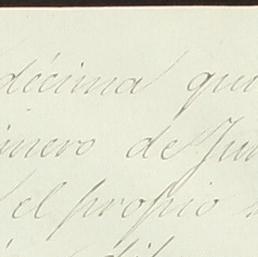 décima qui
imero de Jun
el propio